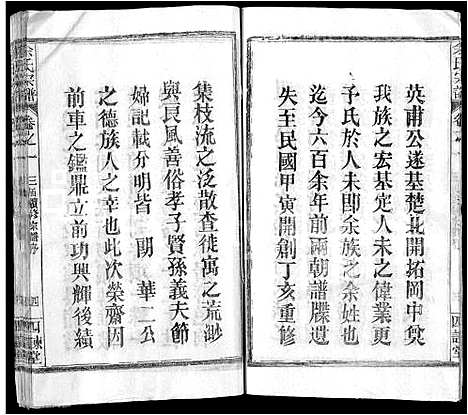 英甫公遂基楚北開拓岡中奠
我族之宏基定人未之偉業更
子氏於人未即余族之余姓也
迄今六百余年前兩朝譜牒遺
失至民國甲寅開創丁亥重修
集枝流之泛散查徙寓之荒渺
與良風善俗孝子賢孫義夫節
婦記載分明皆 閗 華二公
之德族人之幸也此次榮齋因
前車之鑑鼎立前功興輝後績
余氏宗譜
卷之一
三屆續修宗譜序
四
四諫堂